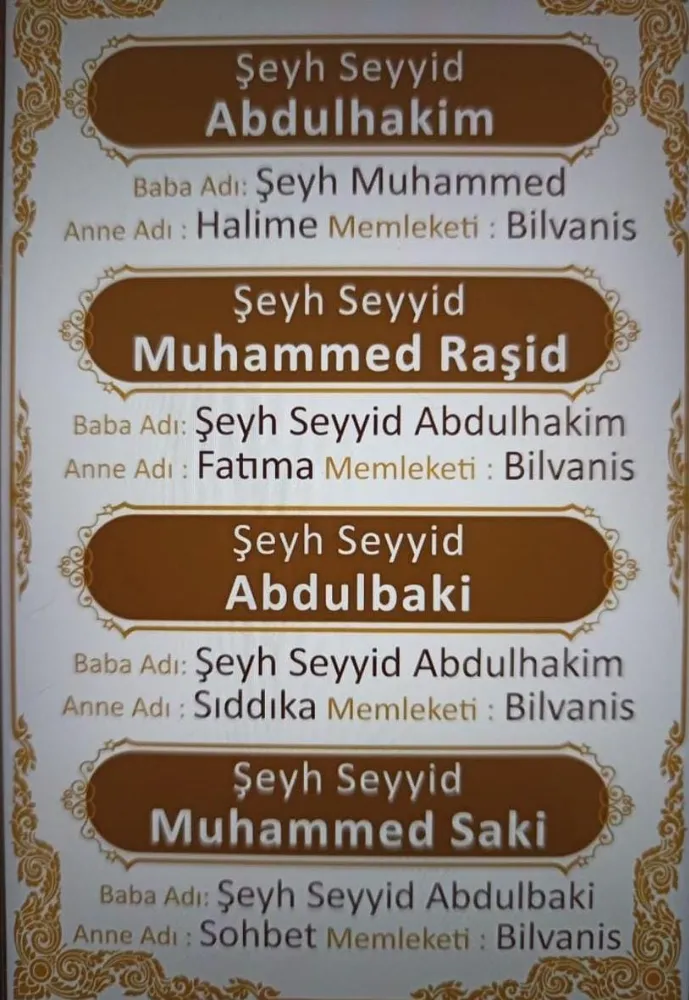 Şeyh Seyyid
Abdulhakim
Baba Adı: Şeyh Muhammed
Anne Adı : Halime Memleketi : Bilvanis
Şeyh Seyyid
Muhammed Raşid
Baba Adı: Şeyh Seyyid Abdulhakim
Anne Adı : Fatıma Memleketi : Bilvanis
Şeyh Seyyid
Abdulbaki
Baba Adı: Şeyh Seyyid Abdulhakim
Anne Adı : Sıddıka Memleketi : Bilvanis
Şeyh Seyyid
Muhammed Saki
Baba Adı: Şeyh Seyyid Abdulbaki
Anne Adı : Sohbet Memleketi : Bilvanis